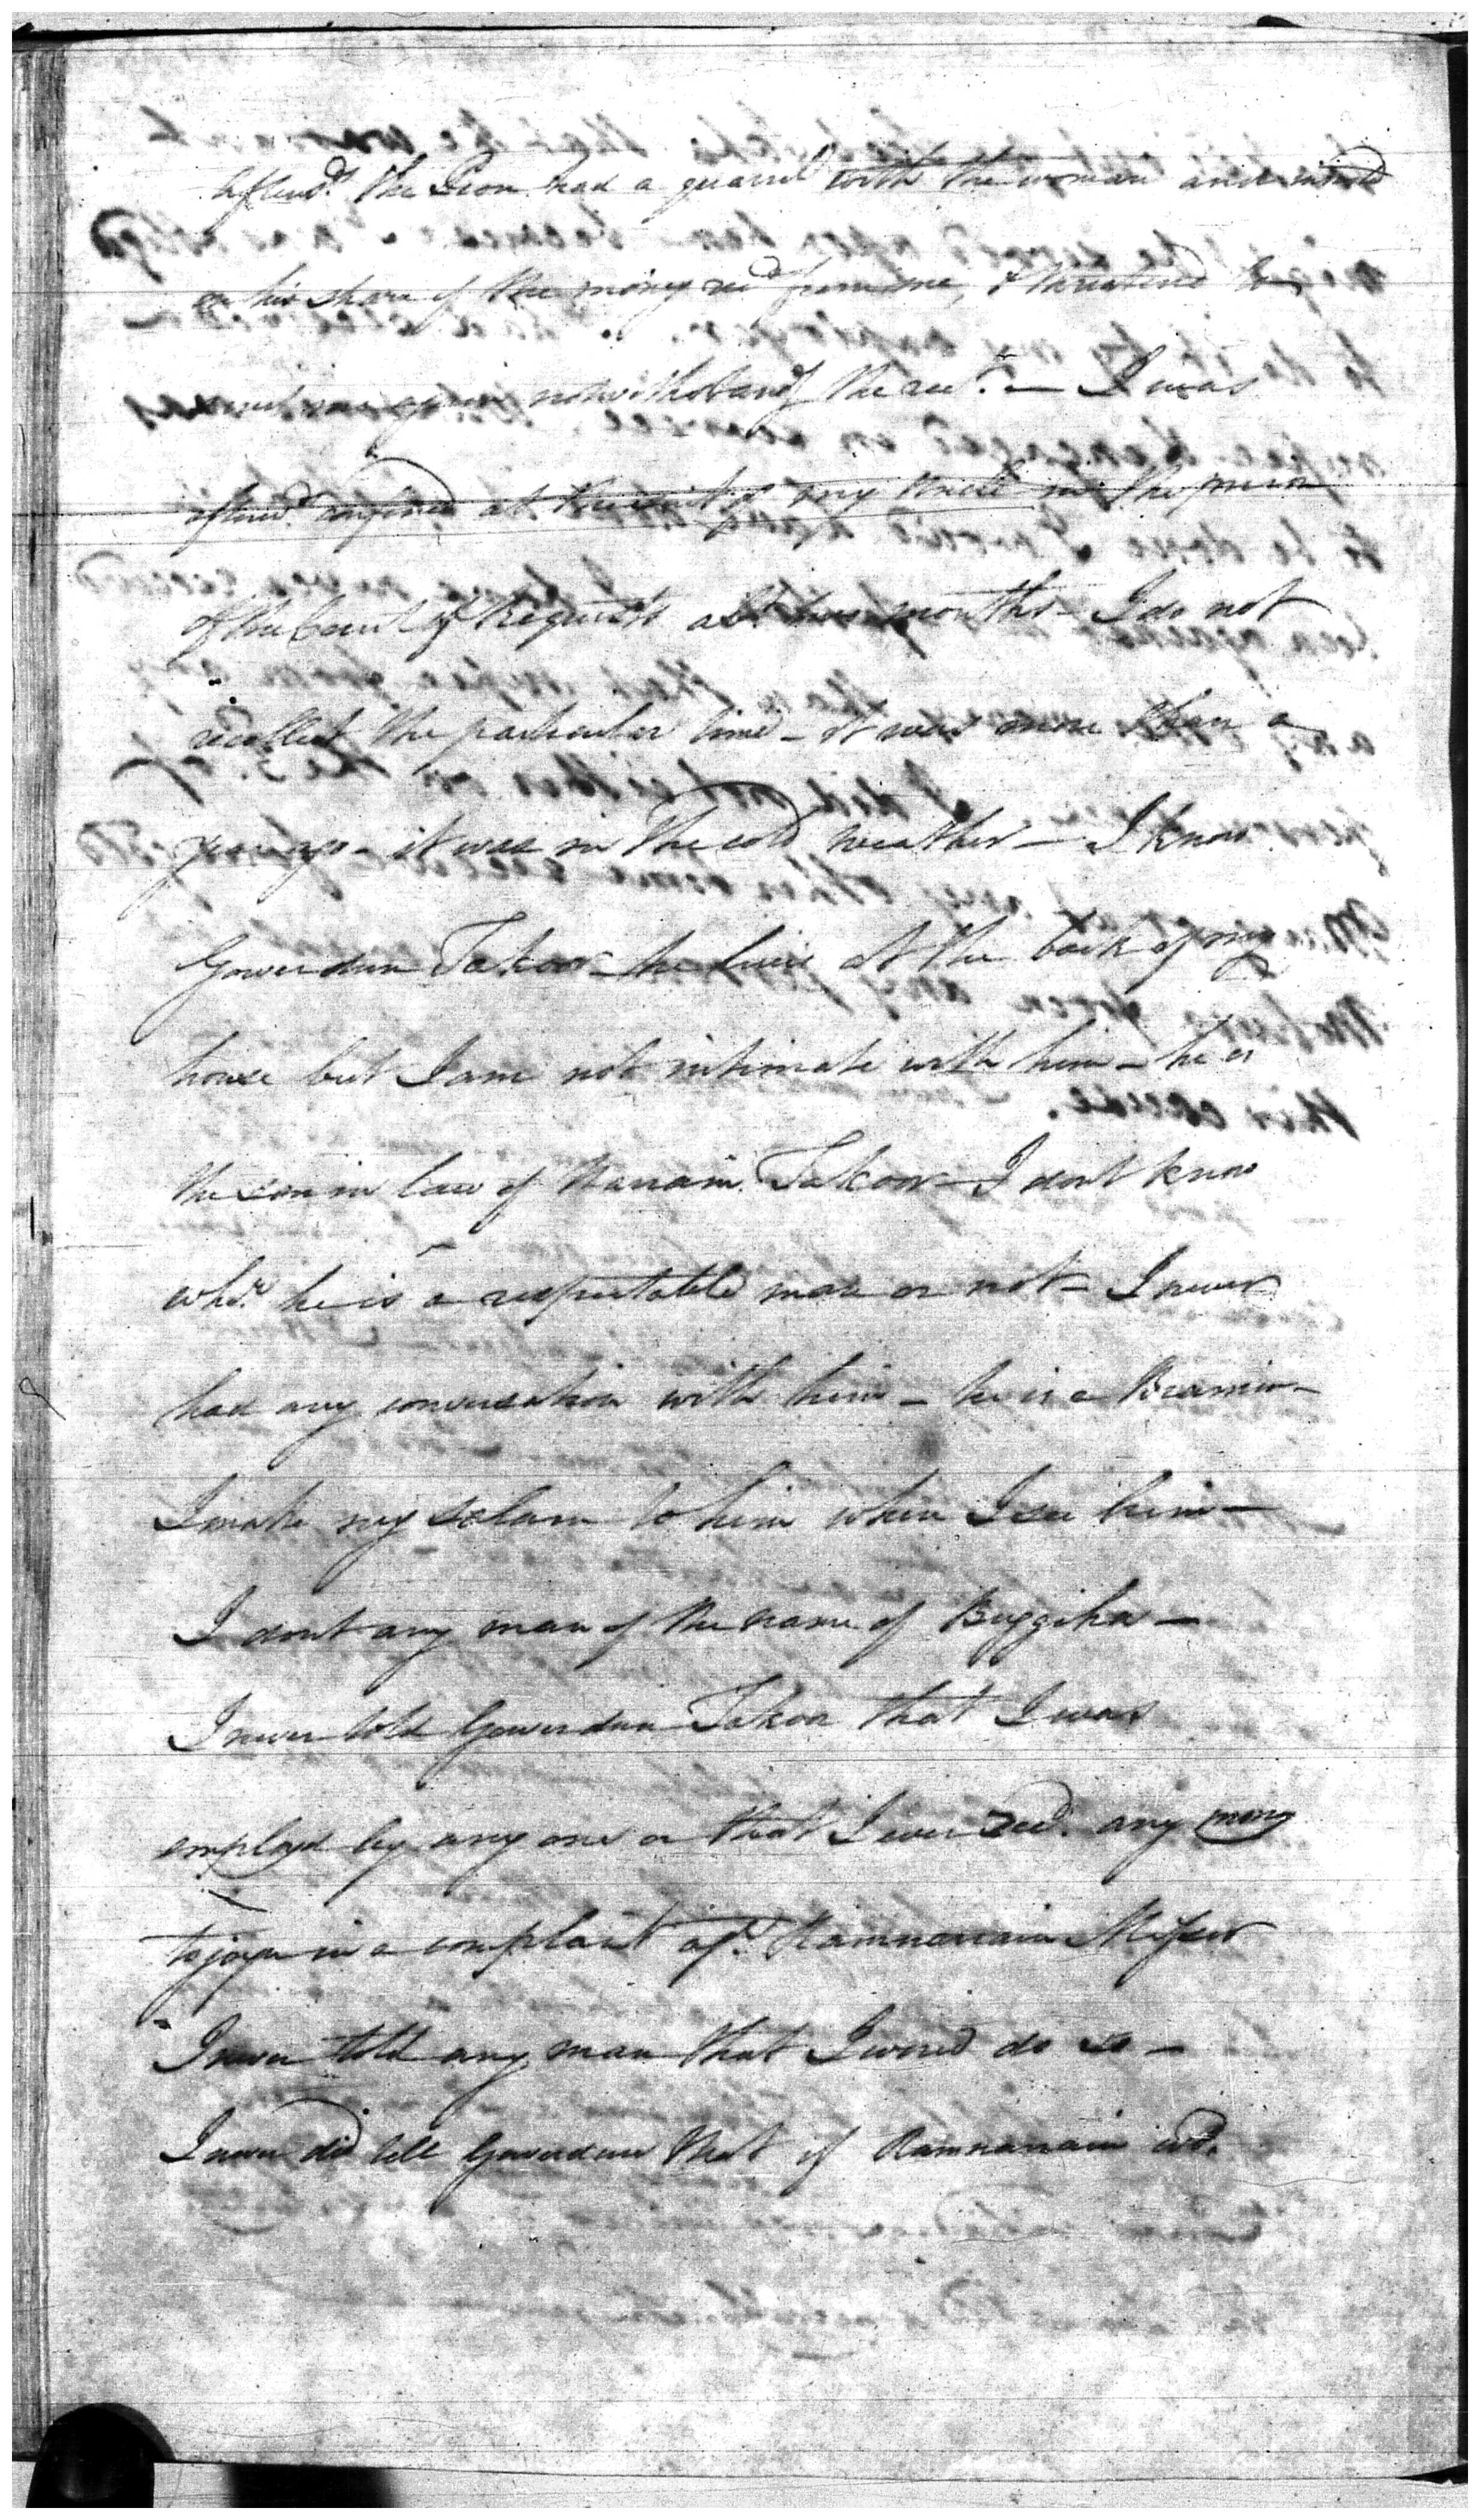 afterwds. the Peon had a quarrel with the woman and insisted
on his share of the money recd. from me, & threatened to
me again notwithstandg. the rect. — I was
afterwds. confined at the suit of my Uncle in the prison
of the Court of Requests abt. two months — I do not
recollect the particular time — it was more than a
year ago — it was in the cold weather — I know
Gowerdun Takoor he lives at the back of my
house but I am not intimate with him — he is
the son in law of Narrain Takoor — I dont know
whr. he is a respectable man or not — I never
had any conversation with him — he is a Bramin —
I make my salam to him when I see him —
I dont any man of the name of Buggiha —
I never told Gowerdun Takoor that I was
employed by any one or that I ever recd. any money
to join in a complaint agt. Ramnarrain Misser
I never told any man that I would do so —
I never did tell Gowerdun that if Ramnarrain wd.